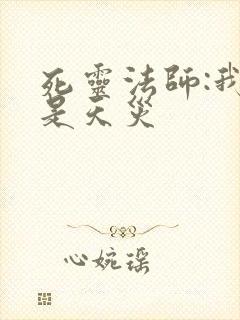 死靈法師:我
是天災
心婉瑶